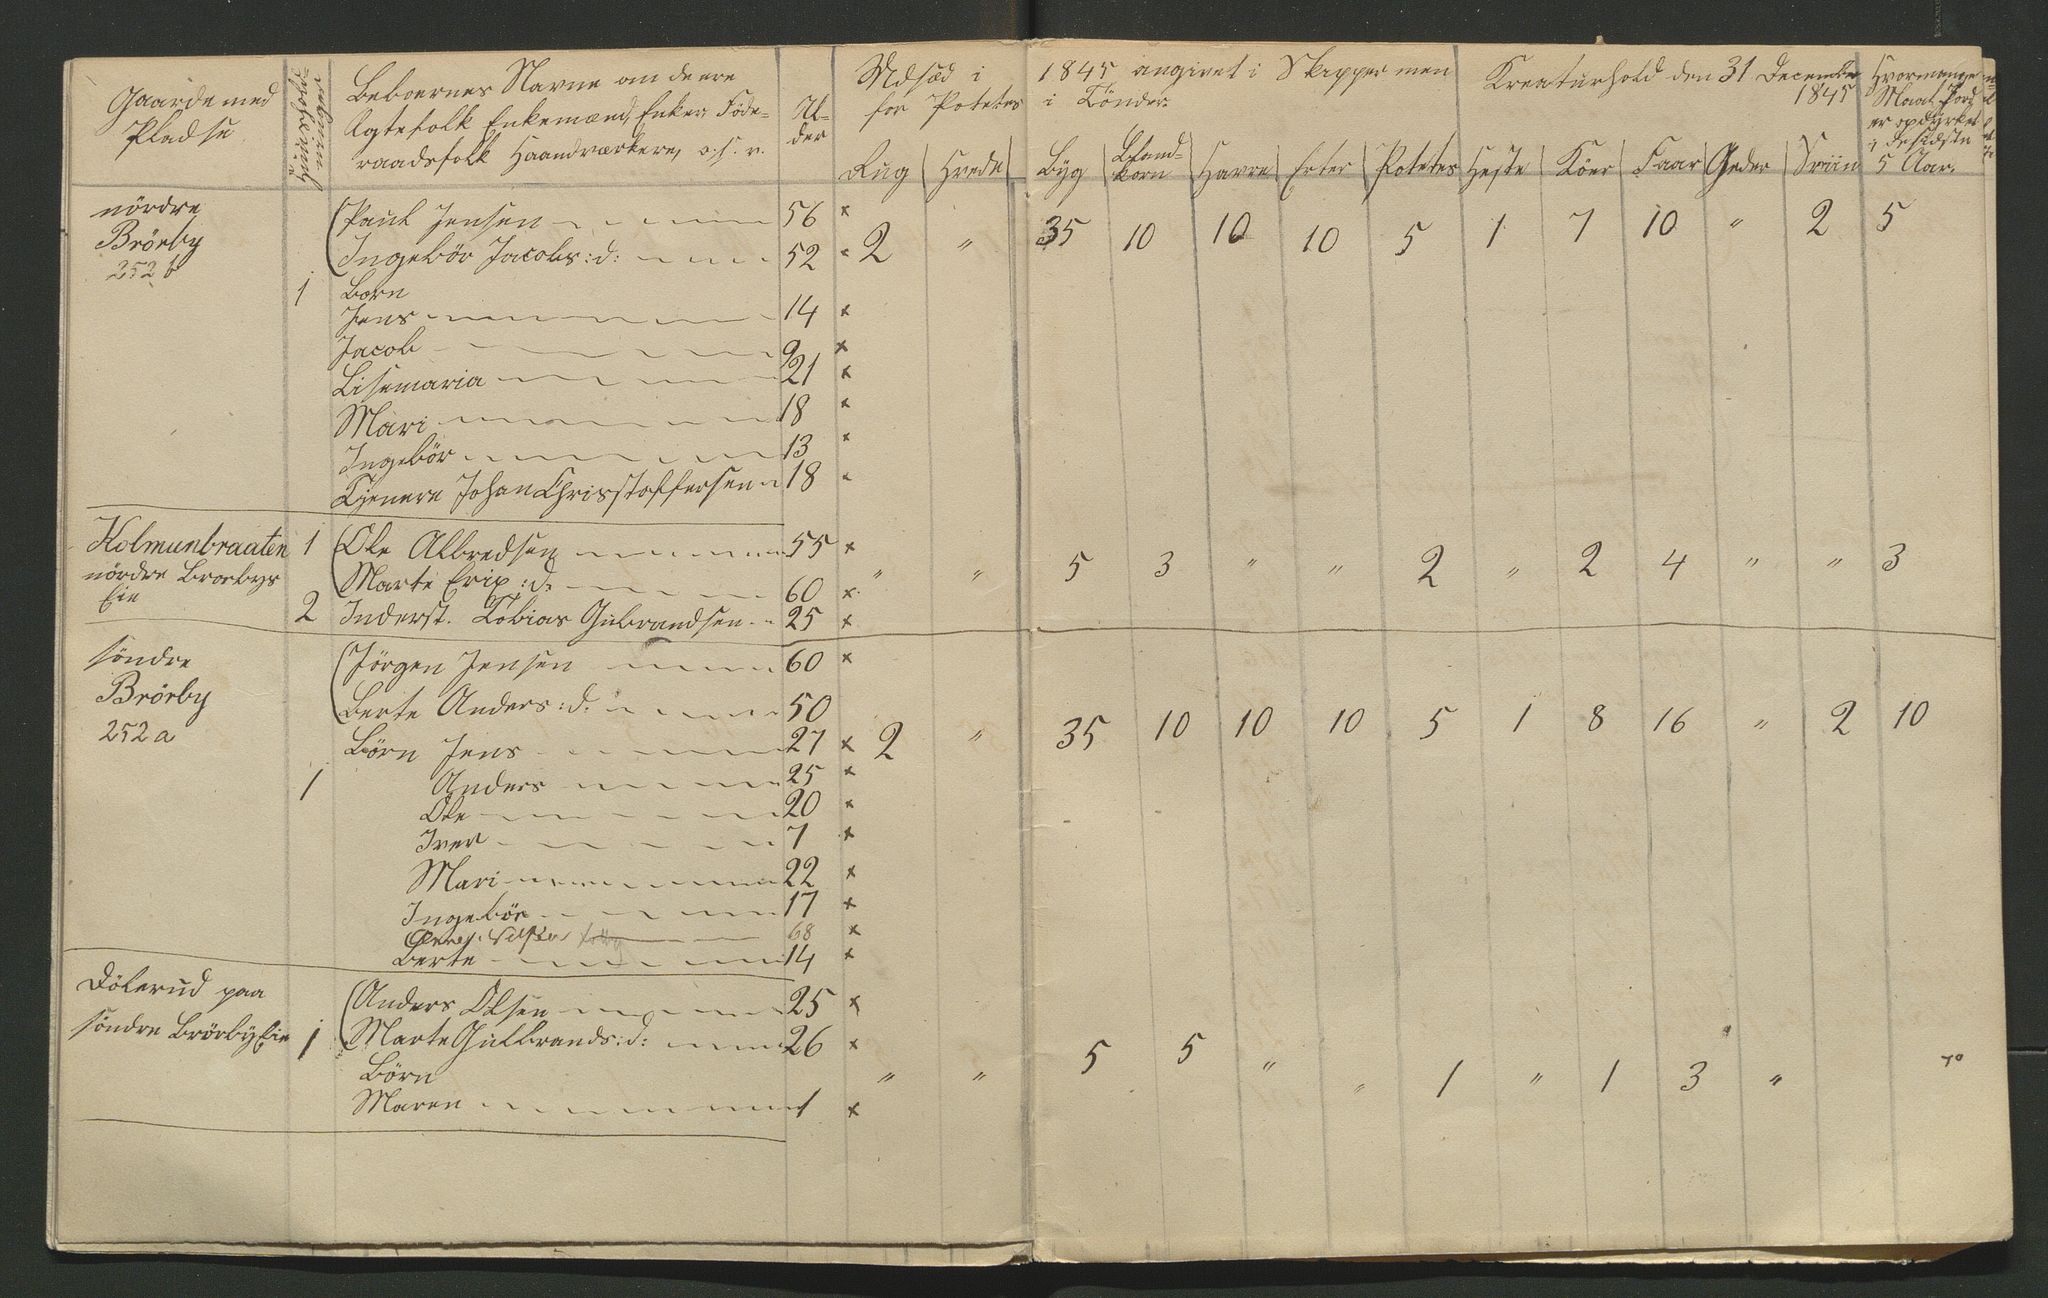 Gaarde med
Pladse
Huusholdningernes
Beboernes Navne om de ere
Ægtefolk Enkemænd, Enker Føde-
raadsfolk Haandværkere, o. s. v.
Al-
der
Udsæd i 1845 angivet i Skipper men
for Potetes i Tønder
Rug Hvede Byg Bland- Havre Erter Potetes
korn
Kreaturhold den 31 December
1845
Heste Köer Faar Geder Sviin
Hvormange
Maal Jord
er opdyrket
i de sidste
5 Aar.
nördre
Brörby
252 b
1
Paul Jensen 56 x
Ingebör Jacobs:d: 52 2 " 35 10 10 10 5 1 7 10 " 2 5
Børn
Jens 14 x
Jacob 9 x
Lisemaria 21 x
Mari 18 x
Ingebör 13 x
Tjenere Johan Christoffersen 18
Kolmunbraaten 1 Ole Albredsen 55 x
nördre Broebys Marte Erix:d: 60 x " " 5 3 " " 2 " 2 4 " " 3
Eie
2 Inderst. Tobias Gubrandsen 25 x
söndre
Brörby
252 a
1
Jörgen Jensen 60 x
Berte Anders:d. 50
Börn Jens 27 x 2 " 35 10 10 10 5 1 8 16 " 2 10
Anders 25 x
Ole 20 x
Iver 7 x
Mari 22 x
Ingebör 17 x
68 x
Berte 14 x
Dölerud paa
söndre Brörby Eie 1
Anders Olsen 25 x
Marte Gulbrands:d: 26 x
Börn " " 5 5 " " 1 " 1 3 "
Maren 1 x